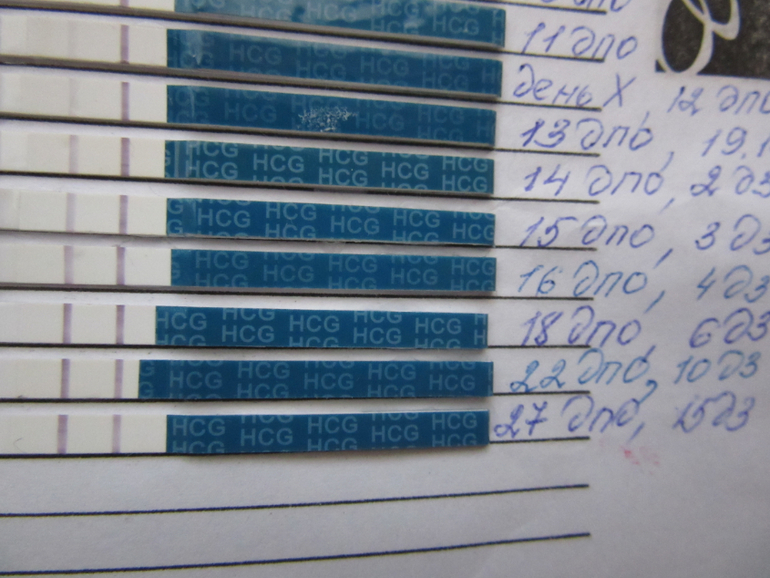 HCG HCG HCG 11 дпо
HCG HCG HCG HCG день X, 12 дпо
HCG HCG HCG 13 дпо, 19.1
HCG HCG HCG HCG HCG HCG HCG 14 дпо, 2 дз
HCG HCG HCG HCG HCG HCG HCG 15 дпо, 3 дз
HCG HCG HCG HCG HCG HCG HCG 16 дпо, 4 дз
HCG HCG HCG HCG HCG HCG HCG 18 дпо, 6 дз
HCG HCG HCG HCG HCG HCG HCG 22 дпо, 10 дз
HCG HCG HCG HCG HCG HCG HCG 27 дпо, 15 дз